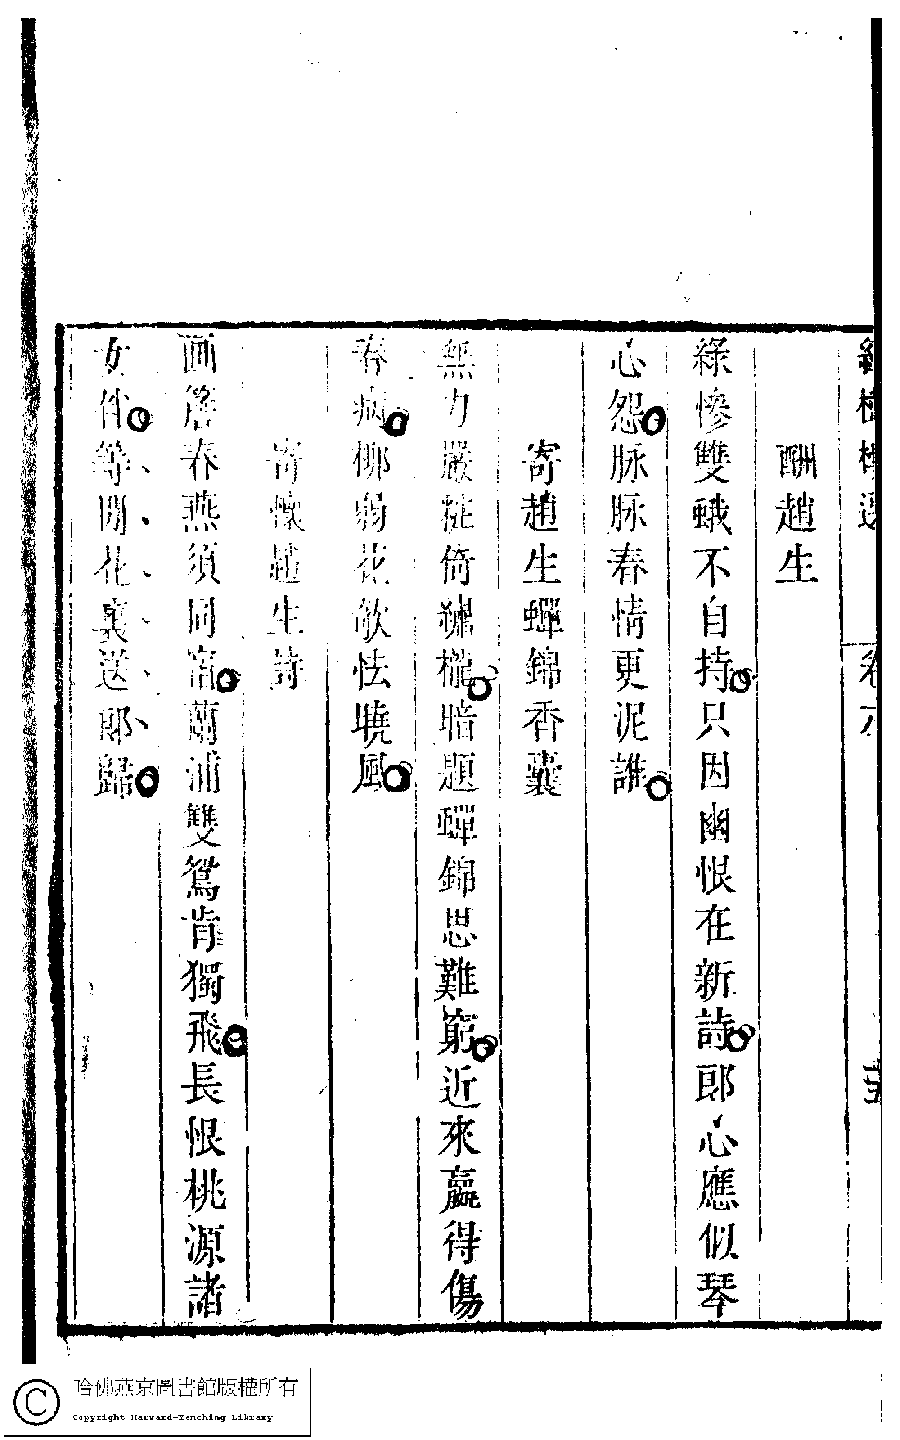 酬趙生
綠慘雙蛾不自持只因幽恨在新詩郎心應似琴
心怨脉脉春情更泥誰
寄趙生蟬錦香囊
無力嚴粧倚繡櫳暗題蟬錦思難窮近來羸得傷
春病柳弱花欹怯曉風
寄懷趙生詩
画簷春燕須同宿蘭浦雙鴛肯獨飛長恨桃源諸
女伴等閒花裏送郎歸
卷六
哈佛燕京圖書館版權所有
Copyright Harvard-Yenching Library